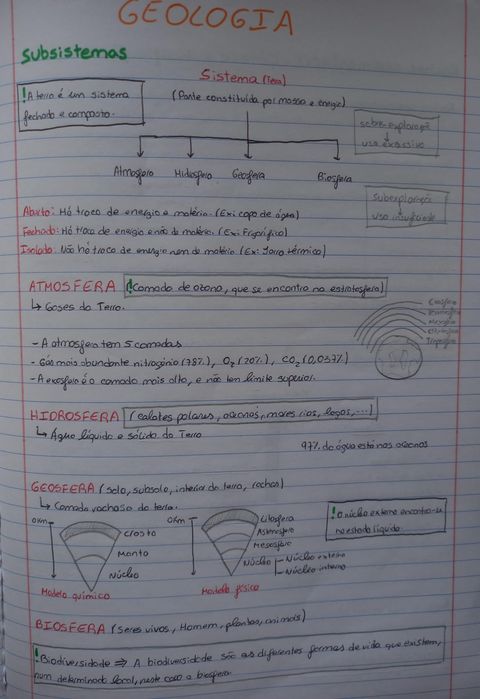 GEOLOGIA
Subsistemas
Sistema (Terra)
! A terra é um sistema
fechado e composto.
(Parte constituída por massa e energia)
sobre-exploração
uso excessivo
Atmosfera Hidrosfera Geosfera Biosfera
subexploração
uso insuficiente
Aberto: Há troca de energia e matéria. (Ex: copo de água)
Fechado: Há troca de energia e não de matéria. (Ex: Frigorífico)
Isolado: Não há troca de energia nem de matéria (Ex: Jarro térmico)
ATMOSFERA (! Camada de ozono, que se encontra na estratosfera)
↳ Gases da Terra.
Exosfera
Termosfera
Mesosfera
Estratosfera
Troposfera
- A atmosfera tem 5 camadas
- Gás mais abundante nitrogénio (78%), O2 (20%), CO2 (0,037%)
- A exosfera é a camada mais alta, e não tem limite superior.
HIDROSFERA (calotes polares, oceanos, mares, rios, lagos,...)
↳ Água líquida e sólida da Terra
97% da água está nos oceanos
GEOSFERA (solo, subsolo, interior da terra, rochas)
↳ Camada rochosa da terra.
0Km
Crosta
Manto
Núcleo
Modelo químico
0Km
Litosfera
Astenosfera
Mesosfera
Núcleo Núcleo externo
Núcleo interno
Modelo físico
! O núcleo externo encontra-se
no estado líquido.
BIOSFERA (Seres vivos, Homem, plantas, animais)
! Biodiversidade ⇒ A biodiversidade são as diferentes formas de vida que existem,
num determinado local, neste caso a biosfera.